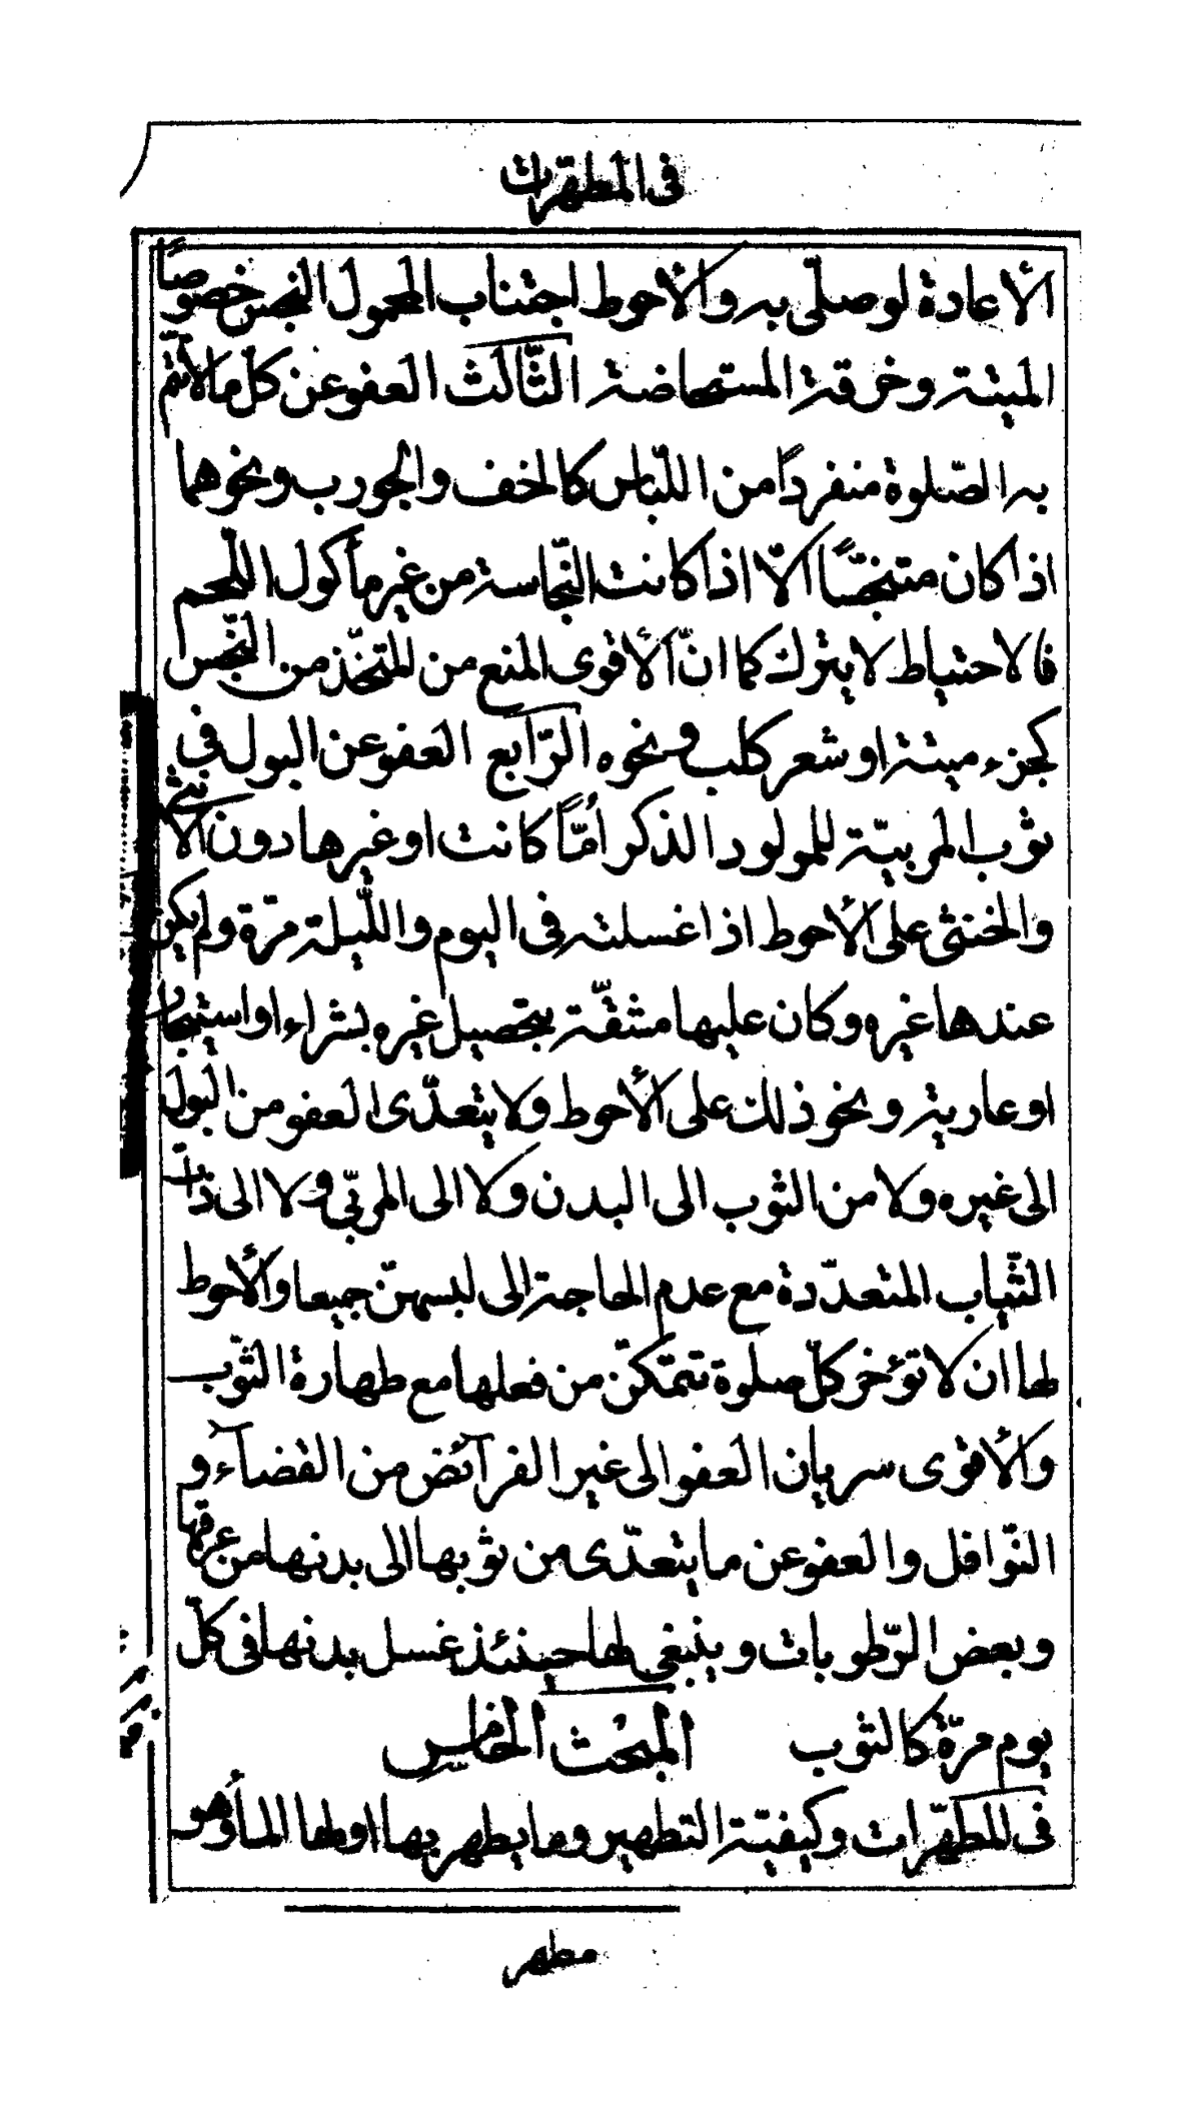 فى المطهّرات
الأعادة لو صلّى به والأحوط اجتناب المحمول النجس خصوصًا
الميتة وخرقة المستحاضة الثّالث العفو عن كل ما لا تتمّ
به الصّلوة منفردًا من اللّباس كالخف والجورب ونحوهما
اذا كان متنجّسًا الّا اذا كانت النّجاسة من غير مأكول اللّحم
فالاحتياط لا يترك كما انّ الأقوى المنع من المتّخذ من النّجس
كجزء ميتة او شعر كلب ونحوه الرّابع العفو عن البول فى
ثوب المربيّة للمولود الذكر امًّا كانت او غيرها دون الأنثى
والخنثى على الأحوط اذا غسلته فى اليوم واللّيلة مرّة ولم يكن
عندها غيره وكان عليها مشقّة بتحصيل غيره بشراء او استيجار
او عارية ونحو ذلك على الأحوط ولا يتعدّى العفو من البول
الى غيره ولا من الثوب الى البدن ولا الى المربّى ولا الى ذات
الثّياب المتعدّدة مع عدم الحاجة الى لبسهنّ جميعا والأحوط
لها ان لا تؤخر كلّ صلوة تتمكّن من فعلها مع طهارة الثّوب
والأقوى سريان العفو الى غير الفرآئض من القضآء و
النّوافل والعفو عن ما يتعدّى من ثوبها الى بدنها من عرقها
وبعض الرّطوبات وينبغى لها حينئذ غسل بدنها فى كلّ
يوم مرّة كالثوب المبحث الخامس
فى المطهّرات وكيفيّة التطهير وما يطهر بها اولها المأ وهو
مطهر